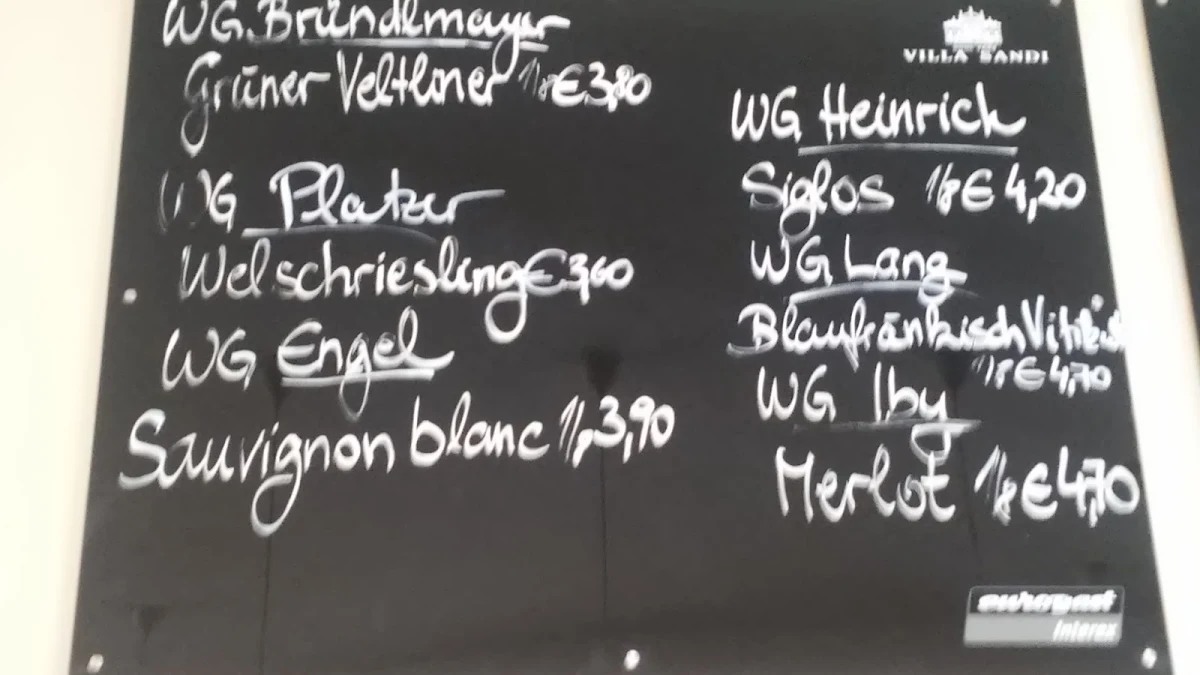 WG. Bründlmayer
Grüner Veltliner 1/8 € 3,80
WG Platzer
Welschriesling € 3,60
WG Engel
Sauvignon blanc 1/8 3,90
VILLA SANDI
WG Heinrich
Siglos 1/8 € 4,20
WG Lang
Blaufränkisch
1/8 € 4,70
WG Iby
Merlot 1/8 € 4,70
eurogast
interex